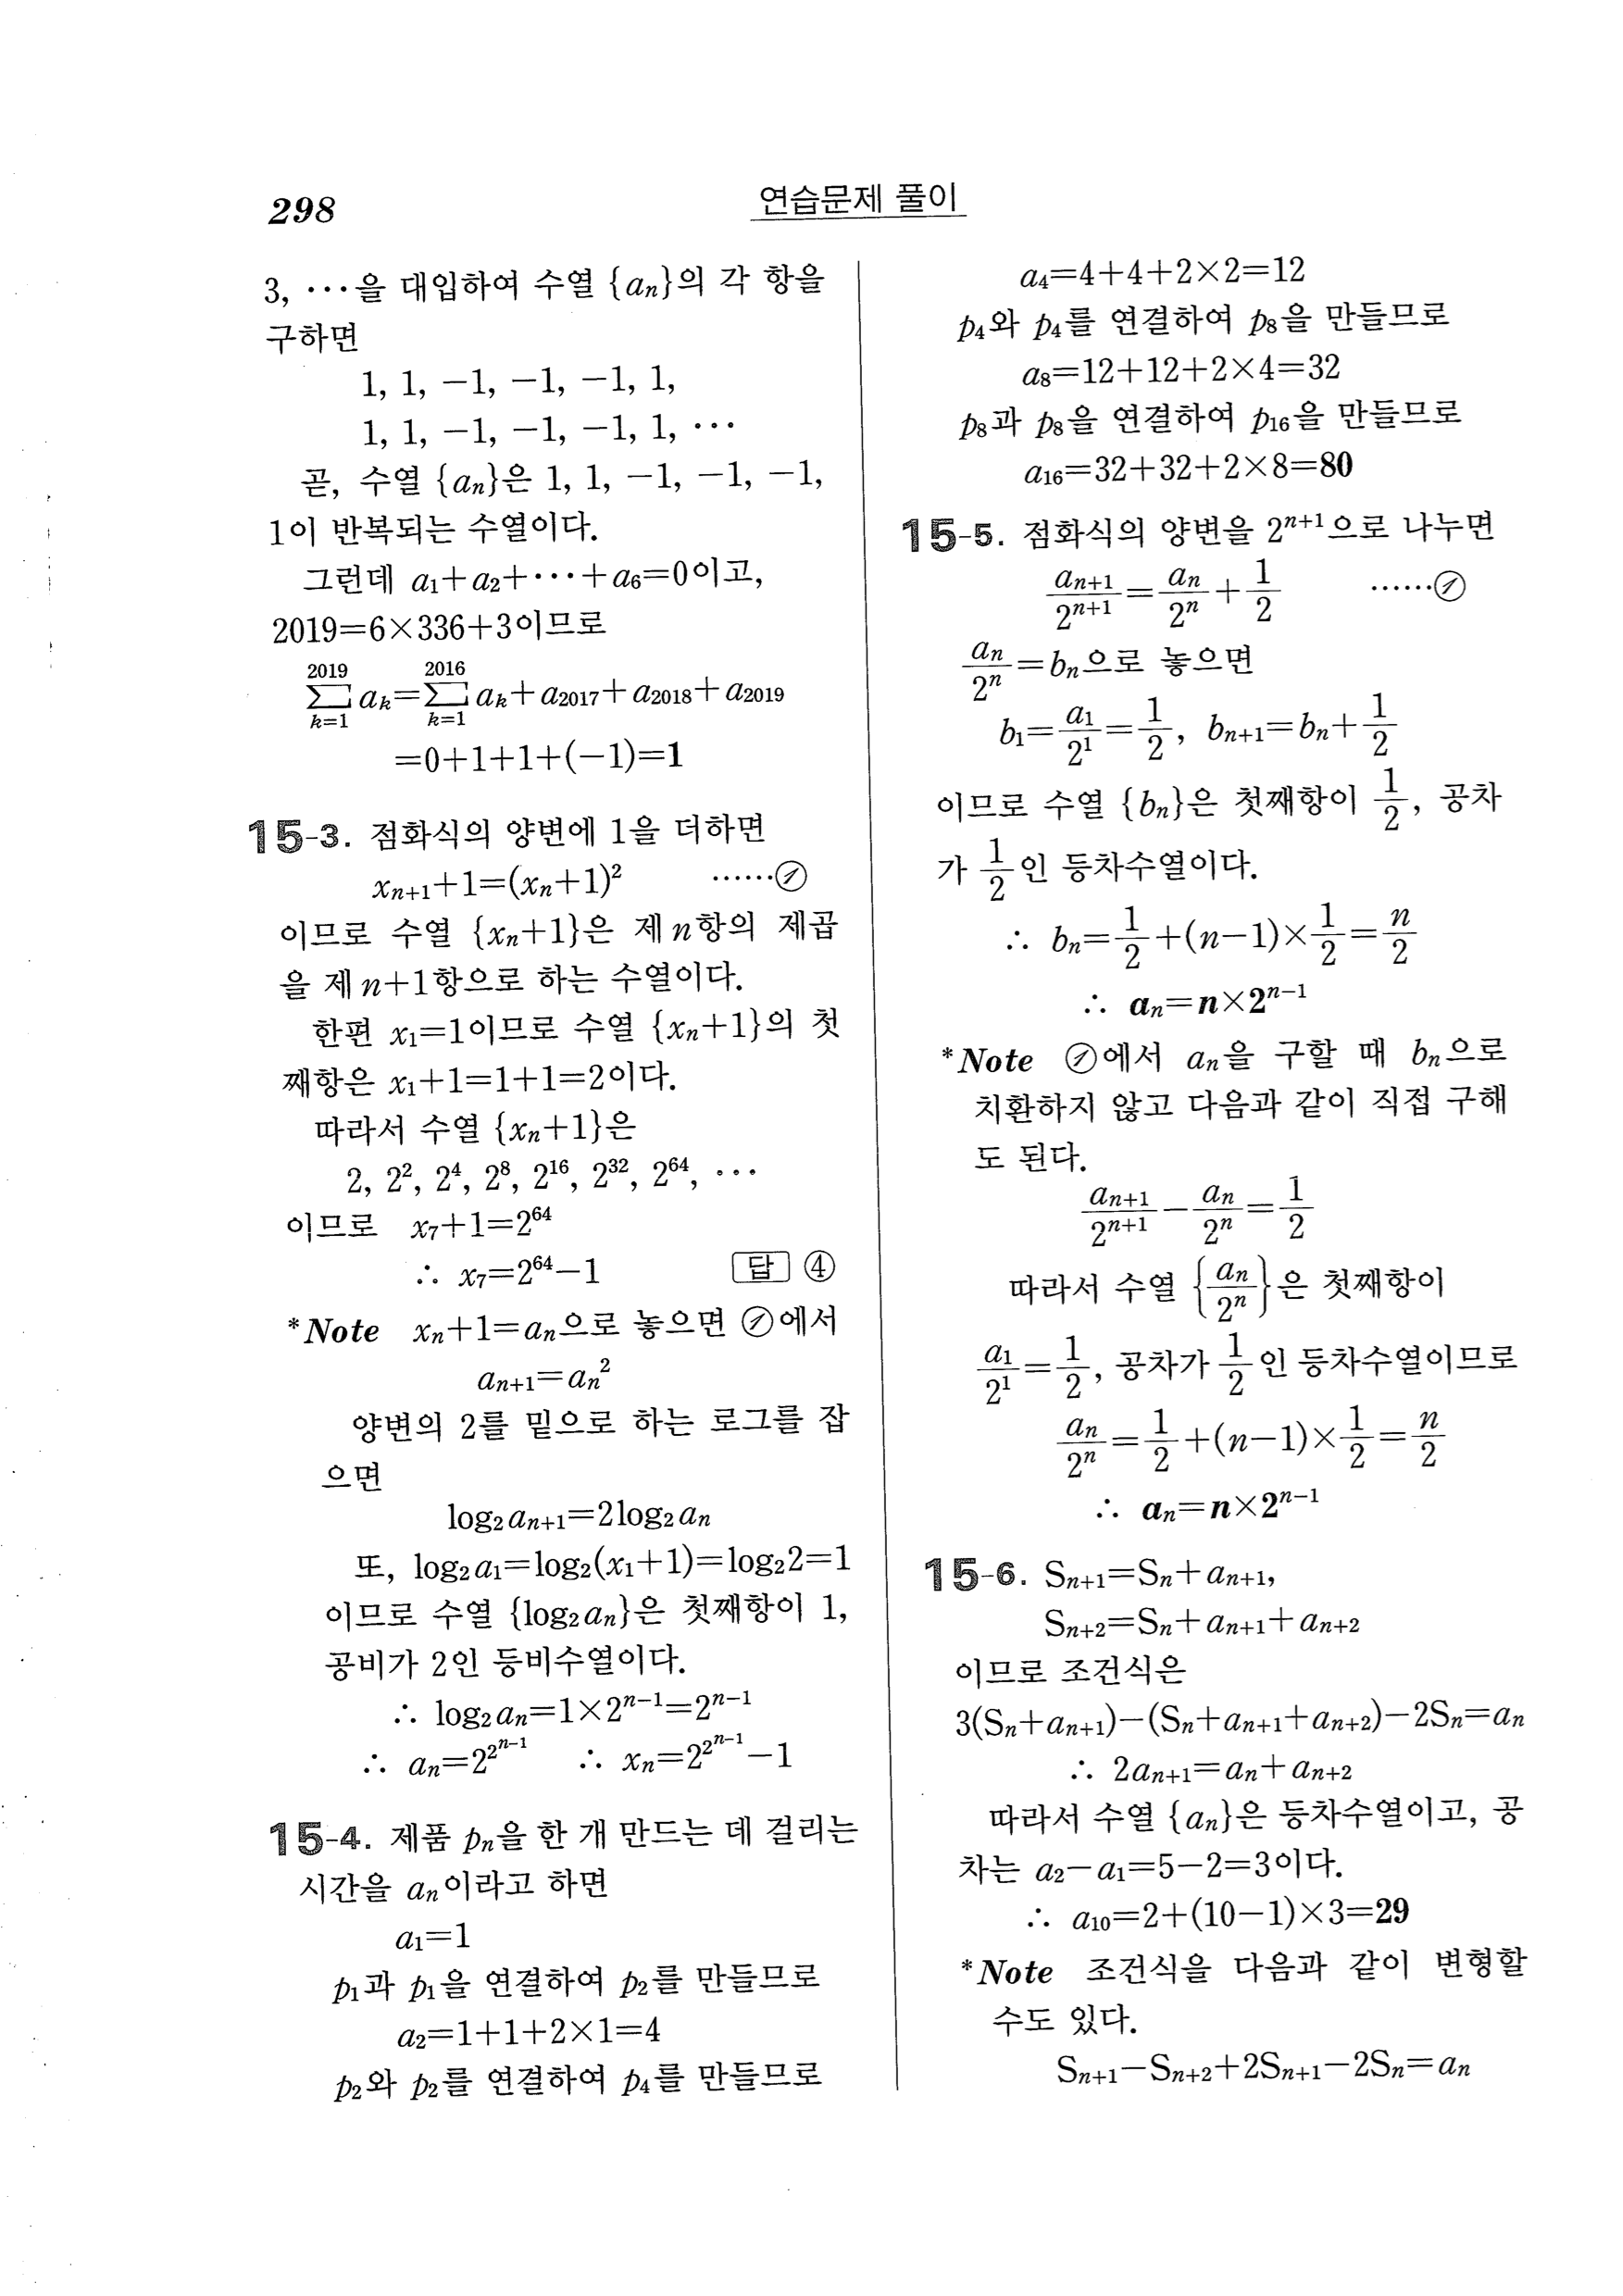 298
연습문제 풀이
3, ⋯을 대입하여 수열 {aₙ}의 각 항을
구하면
1, 1, −1, −1, −1, 1,
1, 1, −1, −1, −1, 1, ⋯
곧, 수열 {aₙ}은 1, 1, −1, −1, −1,
1이 반복되는 수열이다.
그런데 a₁+a₂+⋯+a₆=0이고,
2019=6×336+3이므로
$\sum_{k=1}^{2019} a_k=\sum_{k=1}^{2016} a_k+a_{2017}+a_{2018}+a_{2019}$
=0+1+1+(−1)=1
15-3. 점화식의 양변에 1을 더하면
$x_{n+1}+1=(x_n+1)^2$ ⋯⋯㉠
이므로 수열 {xₙ+1}은 제n항의 제곱
을 제n+1항으로 하는 수열이다.
한편 x₁=1이므로 수열 {xₙ+1}의 첫
째항은 x₁+1=1+1=2이다.
따라서 수열 {xₙ+1}은
$2, 2^2, 2^4, 2^8, 2^{16}, 2^{32}, 2^{64}, ⋯$
이므로 $x_7+1=2^{64}$
∴ $x_7=2^{64}-1$ 답 ④
*Note xₙ+1=aₙ으로 놓으면 ㉠에서
$a_{n+1}=a_n^2$
양변의 2를 밑으로 하는 로그를 잡
으면
$\log_2 a_{n+1}=2\log_2 a_n$
또, $\log_2 a_1=\log_2(x_1+1)=\log_2 2=1$
이므로 수열 {log₂aₙ}은 첫째항이 1,
공비가 2인 등비수열이다.
∴ $\log_2 a_n=1×2^{n-1}=2^{n-1}$
∴ $a_n=2^{2^{n-1}}$ ∴ $x_n=2^{2^{n-1}}-1$
15-4. 제품 pₙ을 한 개 만드는 데 걸리는
시간을 aₙ이라고 하면
a₁=1
p₁과 p₁을 연결하여 p₂를 만들므로
a₂=1+1+2×1=4
p₂와 p₂를 연결하여 p₄를 만들므로
a₄=4+4+2×2=12
p₄와 p₄를 연결하여 p₈을 만들므로
a₈=12+12+2×4=32
p₈과 p₈을 연결하여 p₁₆을 만들므로
a₁₆=32+32+2×8=80
15-5. 점화식의 양변을 $2^{n+1}$으로 나누면
$\frac{a_{n+1}}{2^{n+1}}=\frac{a_n}{2^n}+\frac{1}{2}$ ⋯⋯㉠
$\frac{a_n}{2^n}=b_n$으로 놓으면
$b_1=\frac{a_1}{2^1}=\frac{1}{2}, b_{n+1}=b_n+\frac{1}{2}$
이므로 수열 {bₙ}은 첫째항이 $\frac{1}{2}$, 공차
가 $\frac{1}{2}$인 등차수열이다.
∴ $b_n=\frac{1}{2}+(n-1)×\frac{1}{2}=\frac{n}{2}$
∴ $a_n=n×2^{n-1}$
*Note ㉠에서 aₙ을 구할 때 bₙ으로
치환하지 않고 다음과 같이 직접 구해
도 된다.
$\frac{a_{n+1}}{2^{n+1}}-\frac{a_n}{2^n}=\frac{1}{2}$
따라서 수열 $\left\{\frac{a_n}{2^n}\right\}$은 첫째항이
$\frac{a_1}{2^1}=\frac{1}{2}$, 공차가 $\frac{1}{2}$인 등차수열이므로
$\frac{a_n}{2^n}=\frac{1}{2}+(n-1)×\frac{1}{2}=\frac{n}{2}$
∴ $a_n=n×2^{n-1}$
15-6. $S_{n+1}=S_n+a_{n+1},$
$S_{n+2}=S_n+a_{n+1}+a_{n+2}$
이므로 조건식은
$3(S_n+a_{n+1})-(S_n+a_{n+1}+a_{n+2})-2S_n=a_n$
∴ $2a_{n+1}=a_n+a_{n+2}$
따라서 수열 {aₙ}은 등차수열이고, 공
차는 a₂−a₁=5−2=3이다.
∴ a₁₀=2+(10−1)×3=29
*Note 조건식을 다음과 같이 변형할
수도 있다.
$S_{n+1}-S_{n+2}+2S_{n+1}-2S_n=a_n$